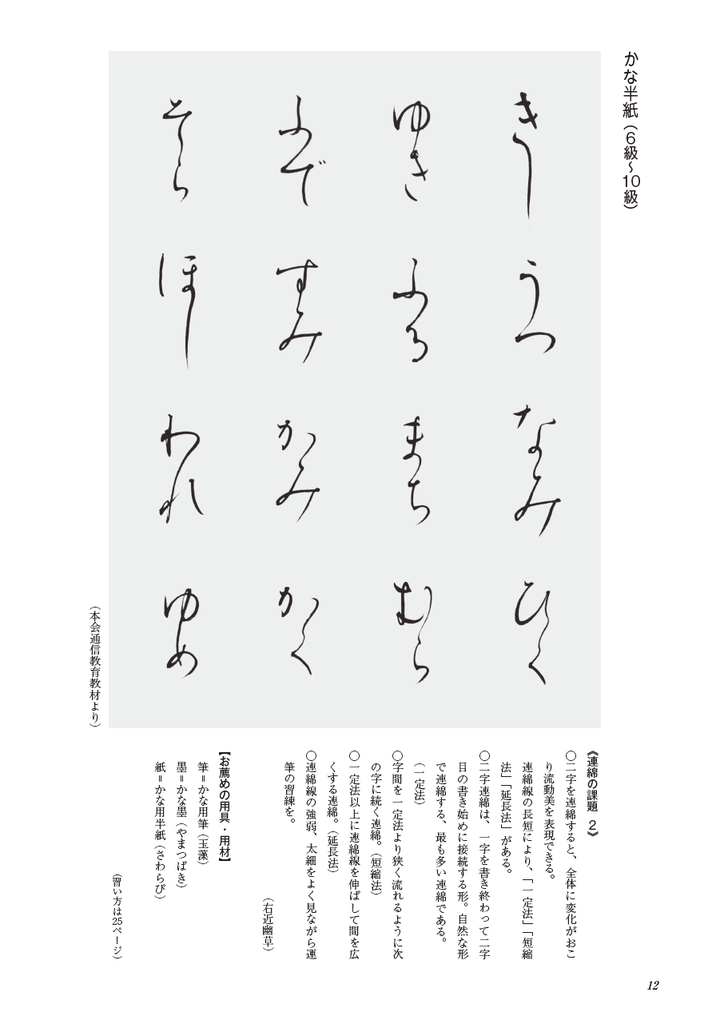 かな半紙（6級〜10級）
きし
うつ
なみ
ひく
ゆき
ふる
まち
むら
ふで
すみ
かみ
かく
そら
ほし
われ
ゆめ
（本会通信教育教材より）
《連綿の課題 2》
○二字を連綿すると、全体に変化がおこ
り流動美を表現できる。
連綿線の長短により、「一定法」「短縮
法」「延長法」がある。
○二字連綿は、一字を書き終わって二字
目の書き始めに接続する形。自然な形
で連綿する、最も多い連綿である。
（一定法）
○字間を一定法より狭く流れるように次
の字に続く連綿。（短縮法）
○一定法以上に連綿線を伸ばして間を広
くする連綿。（延長法）
○連綿線の強弱、太細をよく見ながら運
筆の習練を。
（右近幽草）
【お薦めの用具・用材】
筆＝かな用筆（玉藻）
墨＝かな墨（やまつばき）
紙＝かな用半紙（さわらび）
（習い方は25ページ）
12